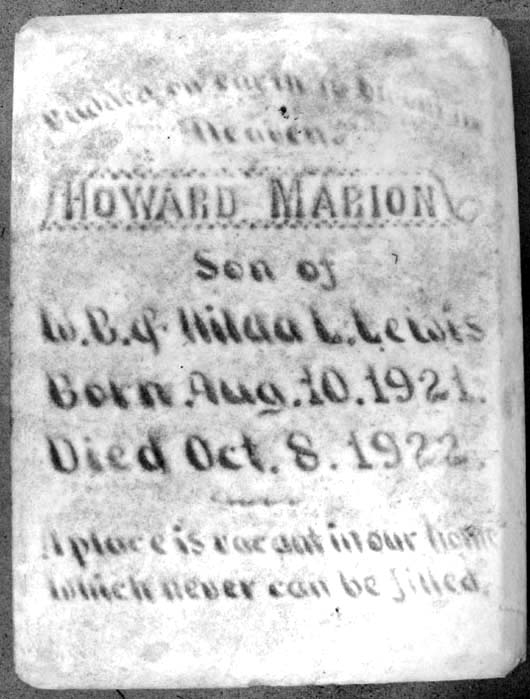 Budded on earth to bloom in
Heaven.
HOWARD MARION
Son of
W. B. & Hilda L. Lewis
Born. Aug. 10. 1921.
Died Oct. 8. 1922.
A place is vacant in our home
Which never can be filled.